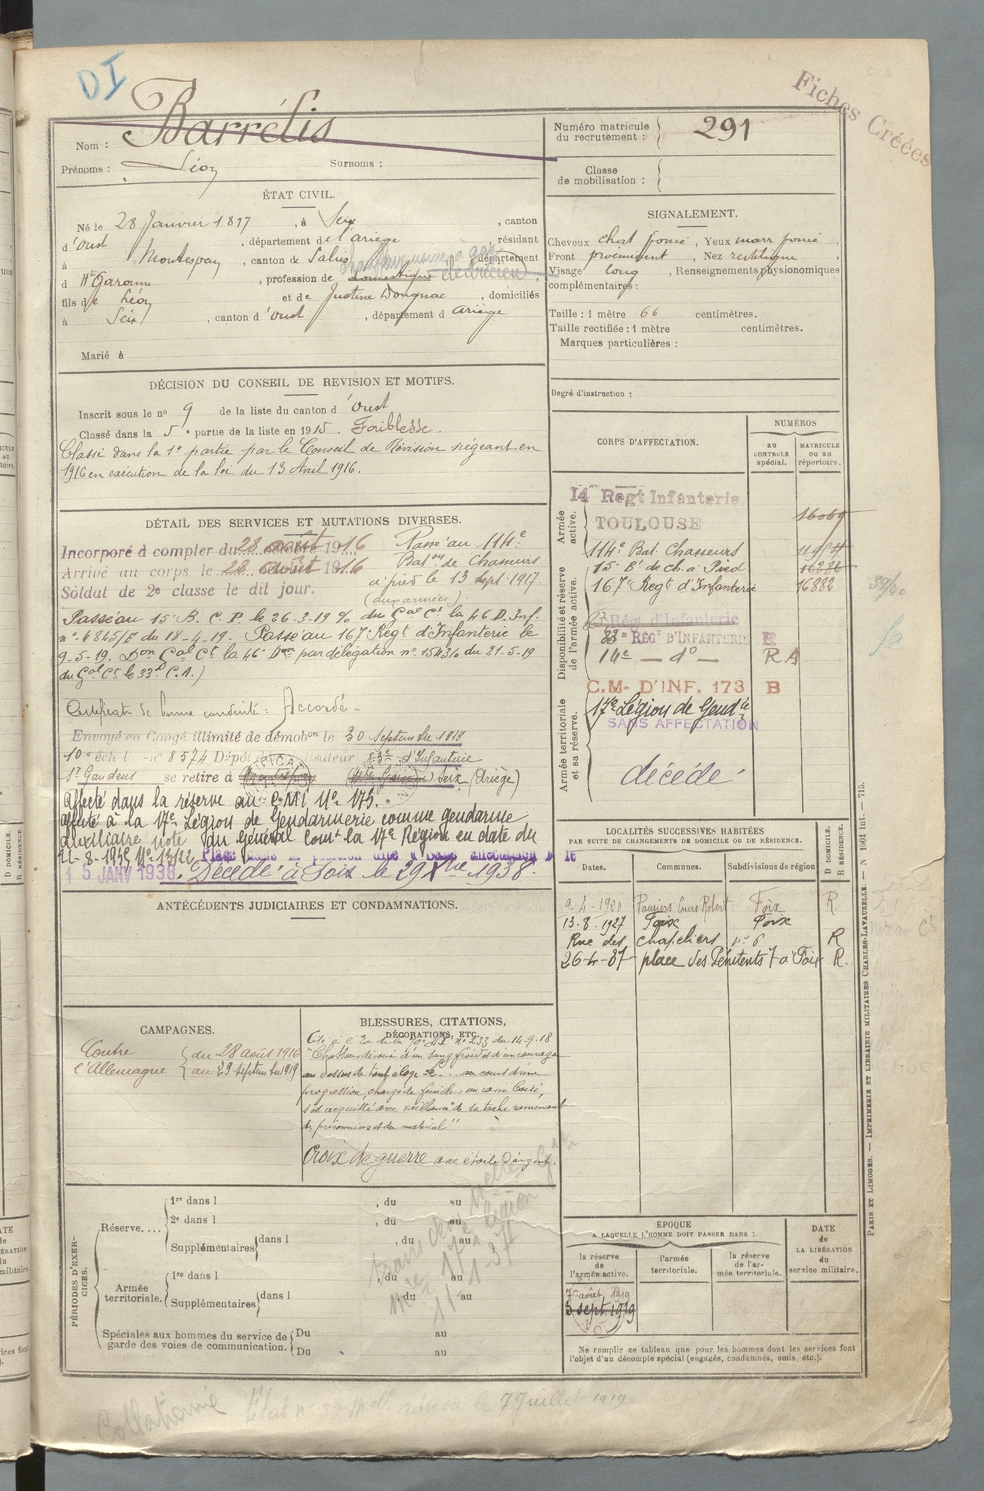 DI
Fiches Créées
Nom : Barrélis
Prénoms : Léon Surnoms :
Numéro matricule du recrutement : 291
Classe de mobilisation :
ÉTAT CIVIL.
Né le 28 Janvier 1897, à Seix, canton
d'Oust, département de l'Ariège, résidant
à Montespan, canton de Salies, département
d Hte Garonne, profession de domestique électricien
fils de Léon et de Justine Dougnac, domiciliés
à Seix, canton d'Oust, département d Ariège
Marié à
SIGNALEMENT.
Cheveux chat foncé, Yeux marr foncé,
Front proéminent, Nez rectiligne,
Visage long, Renseignements physionomiques
complémentaires :
Taille : 1 mètre 66 centimètres.
Taille rectifiée : 1 mètre centimètres.
Marques particulières :
Degré d'instruction :
DÉCISION DU CONSEIL DE REVISION ET MOTIFS.
Inscrit sous le no 9 de la liste du canton d'Oust
Classé dans la 5e partie de la liste en 1915. Faiblesse.
Classé dans la 1e partie par le Conseil de Révision siégeant en
1916 en exécution de la loi du 13 Avril 1916.
DÉTAIL DES SERVICES ET MUTATIONS DIVERSES.
Incorporé à compter du 28 août 1916
Arrivé au corps le 28 août 1916
Soldat de 2e classe le dit jour.
Passé au 114e
Baton de Chasseurs
à pied le 13 sept 1917
(aux armées)
Passé au 15e B. C. P. le 26-3-19 % du Gal Ct la 46 D. Inf.
no 4845/E du 18-4-19. Passé au 167 Régt d'Infanterie le
9-5-19. Don Gal Ct la 46e Don par délégation no 1543/o du 21-5-19
du Gal Ct le 33e C.A.)
Certificat de bonne conduite : Accordé -
Envoyé en Congé illimité de démobon le 30 Septembre 1919
10e échel no 8574 Dépôt démobilisateur 83e d'Infanterie
St Gaudens se retire à Seix (Ariège)
Affecté dans la réserve au C.M.I No 173.
affecté à la 17e Légion de Gendarmerie comme gendarme
auxiliaire note du Général Comt la 17e Région en date du
15 JANV 1938. Décédé à Foix le 29 Xbre 1938.
CORPS D'AFFECTATION.
NUMÉROS
AU CONTRÔLE spécial.
MATRICULE OU AU répertoire.
Armée active.
14 Régt Infanterie
TOULOUSE
16069
114e Bat. Chasseurs
15e Bn de ch. à Pied
167e Régt d'Infanterie 16882
Disponibilité et réserve de l'armée active.
Rég d'Infanterie
83e RÉGt D'INFANTERIE R
14e — do — R
C.M- D'INF. 173 B
Armée territoriale et sa réserve.
17e Légion de Gendie
SANS AFFECTATION
décédé
ANTÉCÉDENTS JUDICIAIRES ET CONDAMNATIONS.
LOCALITÉS SUCCESSIVES HABITÉES
PAR SUITE DE CHANGEMENTS DE DOMICILE OU DE RÉSIDENCE.
Dates. Communes. Subdivisions de région D DOMICILE. R RÉSIDENCE.
9-4-1920 Pamiers Cours Robert Foix R
13-8-1927 Foix Foix
Rue des chapeliers no 6 R
26-4-37 place des Pénitents 7 à Foix R.
CAMPAGNES.
Contre l'Allemagne
du 28 août 1916
au 29 septembre 1919
BLESSURES, CITATIONS, DÉCORATIONS, ETC.
no 233 du 14-9-18
"Chasseur dévoué d'un sang froid et d'un courage
au dessus de tout éloge. au cours d'une
progression, chargé de fouiller un coin boisé,
s'est acquitté avec vaillance de sa tache ramenant
des prisonniers et du matériel"
Croix de guerre avec étoile d'argent.
PÉRIODES D'EXERCICES.
Réserve....
1re dans l , du au
2e dans l , du au
Supplémentaires dans l , du au
Armée territoriale.
1re dans l , du au
Supplémentaires dans l , du au
Spéciales aux hommes du service de garde des voies de communication.
Du au
Du au
EPOQUE
A LAQUELLE L'HOMME DOIT PASSER DANS :
la réserve de l'armée active.
l'armée territoriale.
la réserve de l'armée territoriale.
DATE de LA LIBÉRATION du service militaire.
7 août 1919
3 sept 1919
Ne remplir ce tableau que pour les hommes dont les services font
l'objet d'un décompte spécial (engagés, condamnés, omis, etc.).
PARIS ET LIMOGES. — IMPRIMERIE ET LIBRAIRIE MILITAIRES CHARLES-LAVAUZELLE.
Collationné
7 Juillet 1919